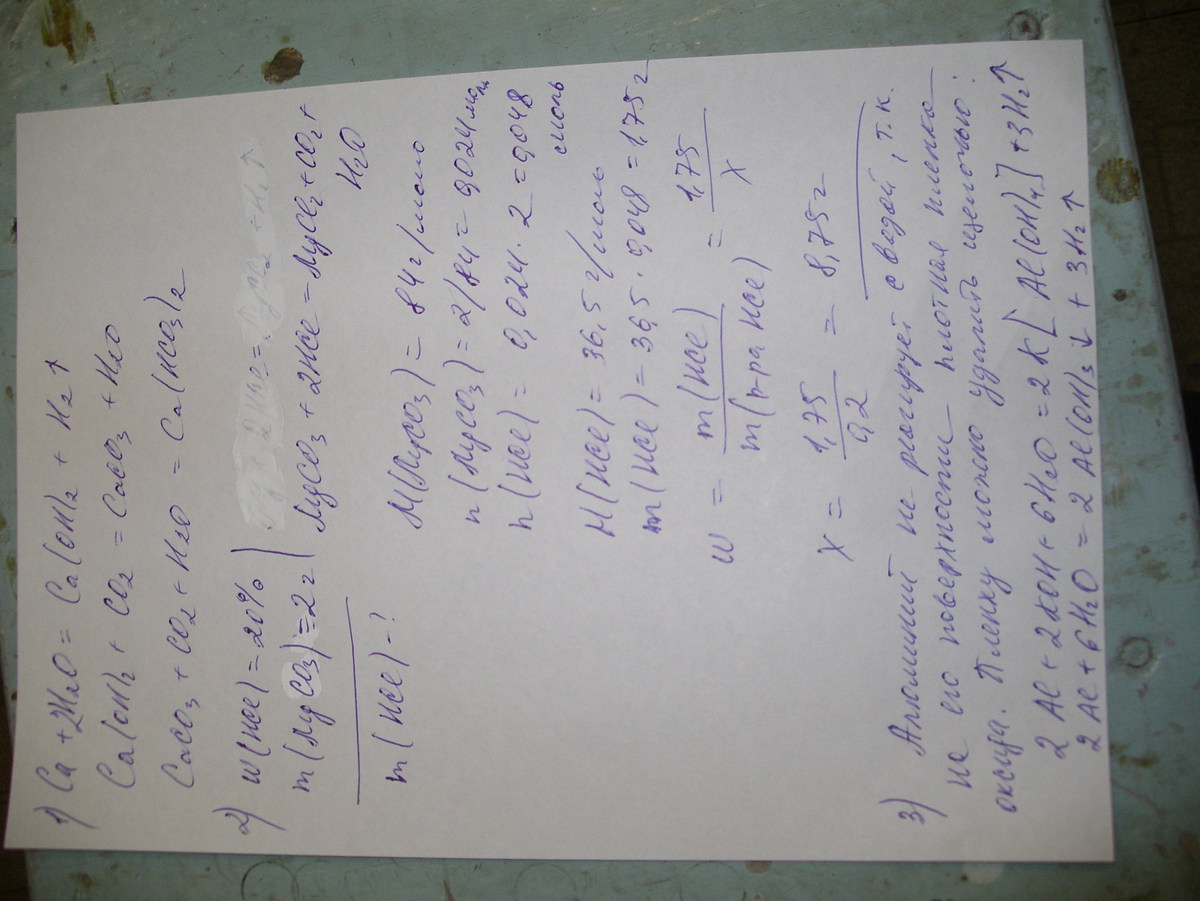 1) Ca + 2H₂O = Ca(OH)₂ + H₂↑
Ca(OH)₂ + CO₂ = CaCO₃ + H₂O
CaCO₃ + CO₂ + H₂O = Ca(HCO₃)₂
2) w(HCl) = 20%
m(MgCO₃) = 2 г
m(HCl) - ?
MgCO₃ + 2HCl = MgCl₂ + CO₂ +
H₂O
M(MgCO₃) = 84 г/моль
n(MgCO₃) = 2/84 = 0,024 моль
n(HCl) = 0,024 · 2 = 0,048
моль
M(HCl) = 36,5 г/моль
m(HCl) = 36,5 · 0,048 = 1,75 г
w = m(HCl) / m(р-ра HCl) = 1,75 / x
x = 1,75 / 0,2 = 8,75 г
3) Алюминий не реагирует с водой, т.к.
на его поверхности плотная пленка
оксида. Пленку можно удалить щелочью:
2 Al + 2KOH + 6H₂O = 2K[Al(OH)₄] + 3H₂↑
2 Al + 6H₂O = 2 Al(OH)₃↓ + 3H₂↑